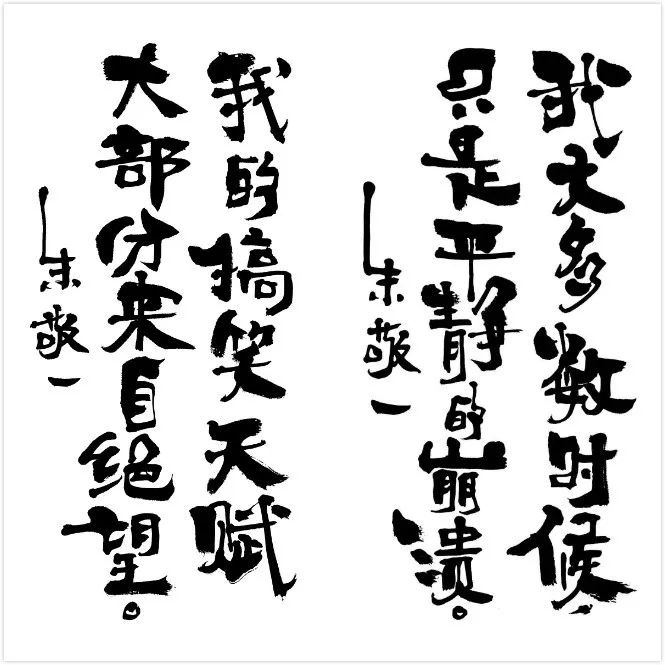 我大多数时候
只是平静的崩溃。
——朱敬一
我的搞笑天赋
大部分来自绝望。
——朱敬一